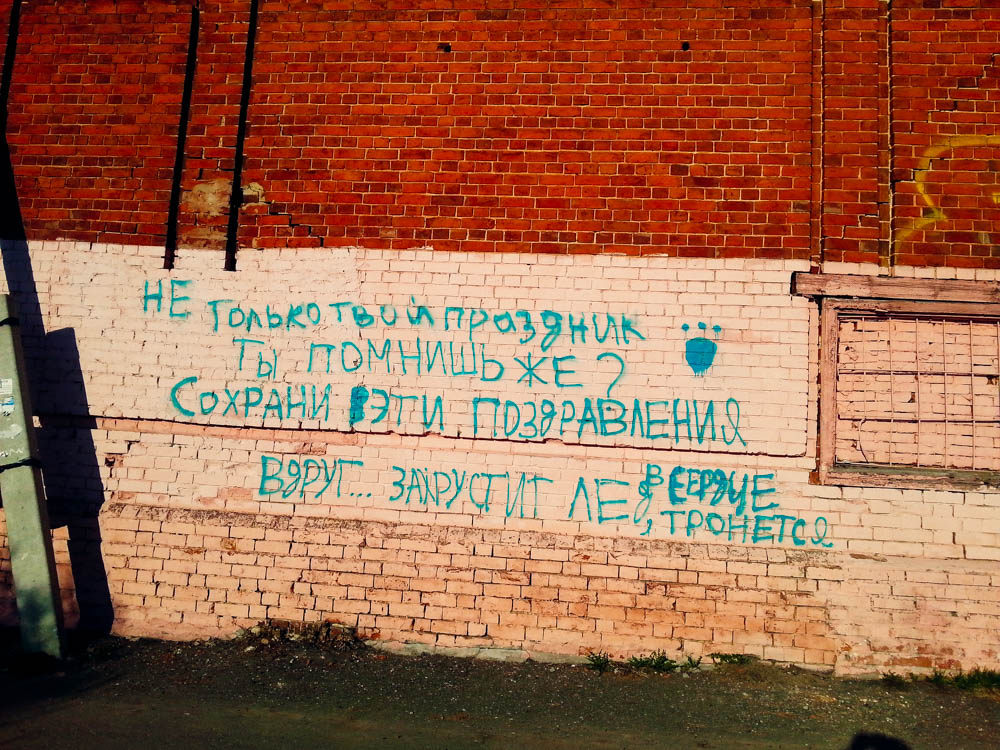 НЕ ТОЛЬКО ТВОЙ ПРАЗДНИК
ТЫ ПОМНИШЬ ЖЕ?
СОХРАНИ ЭТИ ПОЗДРАВЛЕНИЯ
ВДРУГ... ЗАХРУСТИТ ЛЕД В СЕРДЦЕ
, ТРОНЕТСЯ